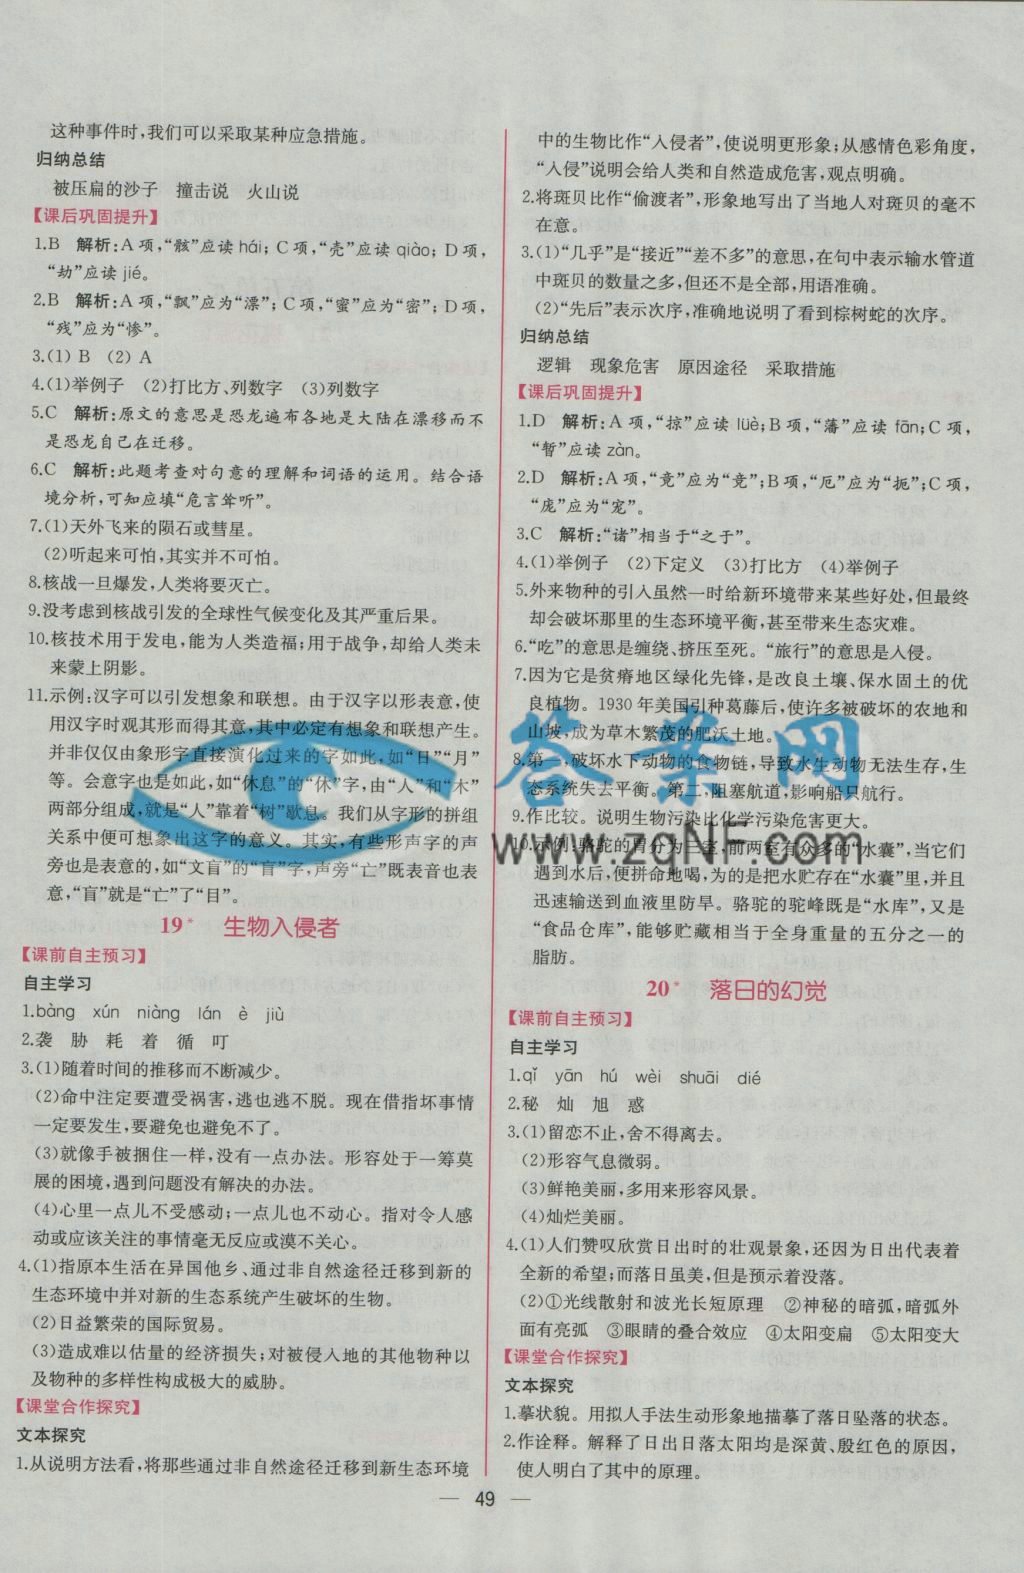 这种事件时,我们可以采取某种应急措施。
归纳总结
被压扁的沙子 撞击说 火山说
【课后巩固提升】
1.B 解析:A项,“骸”应读hái;C项,“壳”应读qiào;D项,
“劫”应读jié。
2.B 解析:A项,“飘”应为“漂”;C项,“蜜”应为“密”;D项,
“残”应为“惨”。
3.(1)B (2)A
4.(1)举例子 (2)打比方、列数字 (3)列数字
5.C 解析:原文的意思是恐龙遍布各地是大陆在漂移而不
是恐龙自己在迁移。
6.C 解析:此题考查对句意的理解和词语的运用。结合语
境分析,可知应填“危言耸听”。
7.(1)天外飞来的陨石或彗星。
(2)听起来可怕,其实并不可怕。
8.核战一旦爆发,人类将要灭亡。
9.没考虑到核战引发的全球性气候变化及其严重后果。
10.核技术用于发电,能为人类造福;用于战争,却给人类未
来蒙上阴影。
11.示例:汉字可以引发想象和联想。由于汉字以形表意,使
用汉字时观其形而得其意,其中必定有想象和联想产生。
并非仅仅由象形字直接演化过来的字如此,如“日”“月”
等。会意字也是如此,如“休息”的“休”字,由“人”和“木”
两部分组成,就是“人”靠着“树”歇息。我们从字形的拼组
关系中便可想象出这字的意义。其实,有些形声字的声
旁也是表意的,如“文盲”的“盲”字,声旁“亡”既表音也表
意,“盲”就是“亡”了“目”。
19* 生物入侵者
【课前自主预习】
自主学习
1.bàng xún niàng lán è jiù
2.袭 胁 耗 着 循 叮
3.(1)随着时间的推移而不断减少。
(2)命中注定要遭受祸害,逃也逃不脱。现在借指坏事情
一定要发生,要避免也避免不了。
(3)就像手被捆住一样,没有一点办法。形容处于一筹莫
展的困境,遇到问题没有解决的办法。
(4)心里一点儿不受感动;一点儿也不动心。指对令人感
动或应该关注的事情毫无反应或漠不关心。
4.(1)指原本生活在异国他乡、通过非自然途径迁移到新的
生态环境中并对新的生态系统产生破坏的生物。
(2)日益繁荣的国际贸易。
(3)造成难以估量的经济损失;对被侵入地的其他物种以
及物种的多样性构成极大的威胁。
【课堂合作探究】
文本探究
1.从说明方法看,将那些通过非自然途径迁移到新生态环境
中的生物比作“入侵者”,使说明更形象;从感情色彩角度,
“入侵”说明会给人类和自然造成危害,观点明确。
2.将斑贝比作“偷渡者”,形象地写出了当地人对斑贝的毫不
在意。
3.(1)“几乎”是“接近”“差不多”的意思,在句中表示输水管道
中斑贝的数量之多,但还不是全部,用语准确。
(2)“先后”表示次序,准确地说明了看到棕树蛇的次序。
归纳总结
逻辑 现象危害 原因途径 采取措施
【课后巩固提升】
1.D 解析:A项,“掠”应读lüè;B项,“藩”应读fān;C项,
“暂”应读zàn。
2.D 解析:A项,“竟”应为“竞”;B项,“厄”应为“扼”;C项,
“庞”应为“宠”。
3.C 解析:“诸”相当于“之于”。
4.(1)举例子 (2)下定义 (3)打比方 (4)举例子
5.外来物种的引入虽然一时给新环境带来某些好处,但最终
却会破坏那里的生态环境平衡,甚至带来生态灾难。
6.“吃”的意思是缠绕、挤压至死。“旅行”的意思是入侵。
7.因为它是贫瘠地区绿化先锋,是改良土壤、保水固土的优
良植物。1930年美国引种葛藤后,使许多被破坏的农地和
山坡,成为草木繁茂的肥沃土地。
8.第一,破坏水下动物的食物链,导致水生动物无法生存,生
态系统失去平衡。第二,阻塞航道,影响船只航行。
9.作比较。说明生物污染比化学污染危害更大。
10.示例:骆驼的胃分为三室,前两室有众多的“水囊”,当它们
遇到水后,便拼命地喝,为的是把水贮存在“水囊”里,并且
迅速输送到血液里防旱。骆驼的驼峰既是“水库”,又是
“食品仓库”,能够贮藏相当于全身重量的五分之一的
脂肪。
20* 落日的幻觉
【课前自主预习】
自主学习
1.qǐ yān hú wèi shuāi dié
2.秘 灿 旭 惑
3.(1)留恋不止,舍不得离去。
(2)形容气息微弱。
(3)鲜艳美丽,多用来形容风景。
(4)灿烂美丽。
4.(1)人们赞叹欣赏日出时的壮观景象,还因为日出代表着
全新的希望;而落日虽美,但是预示着没落。
(2)①光线散射和波光长短原理 ②神秘的暗弧,暗弧外
面有亮弧 ③眼睛的叠合效应 ④太阳变扁 ⑤太阳变大
【课堂合作探究】
文本探究
1.摹状貌。用拟人手法生动形象地描摹了落日坠落的状态。
2.作诠释。解释了日出日落太阳均是深黄、殷红色的原因,
使人明白了其中的原理。
— 49 —
答案网
www.zqNF.com